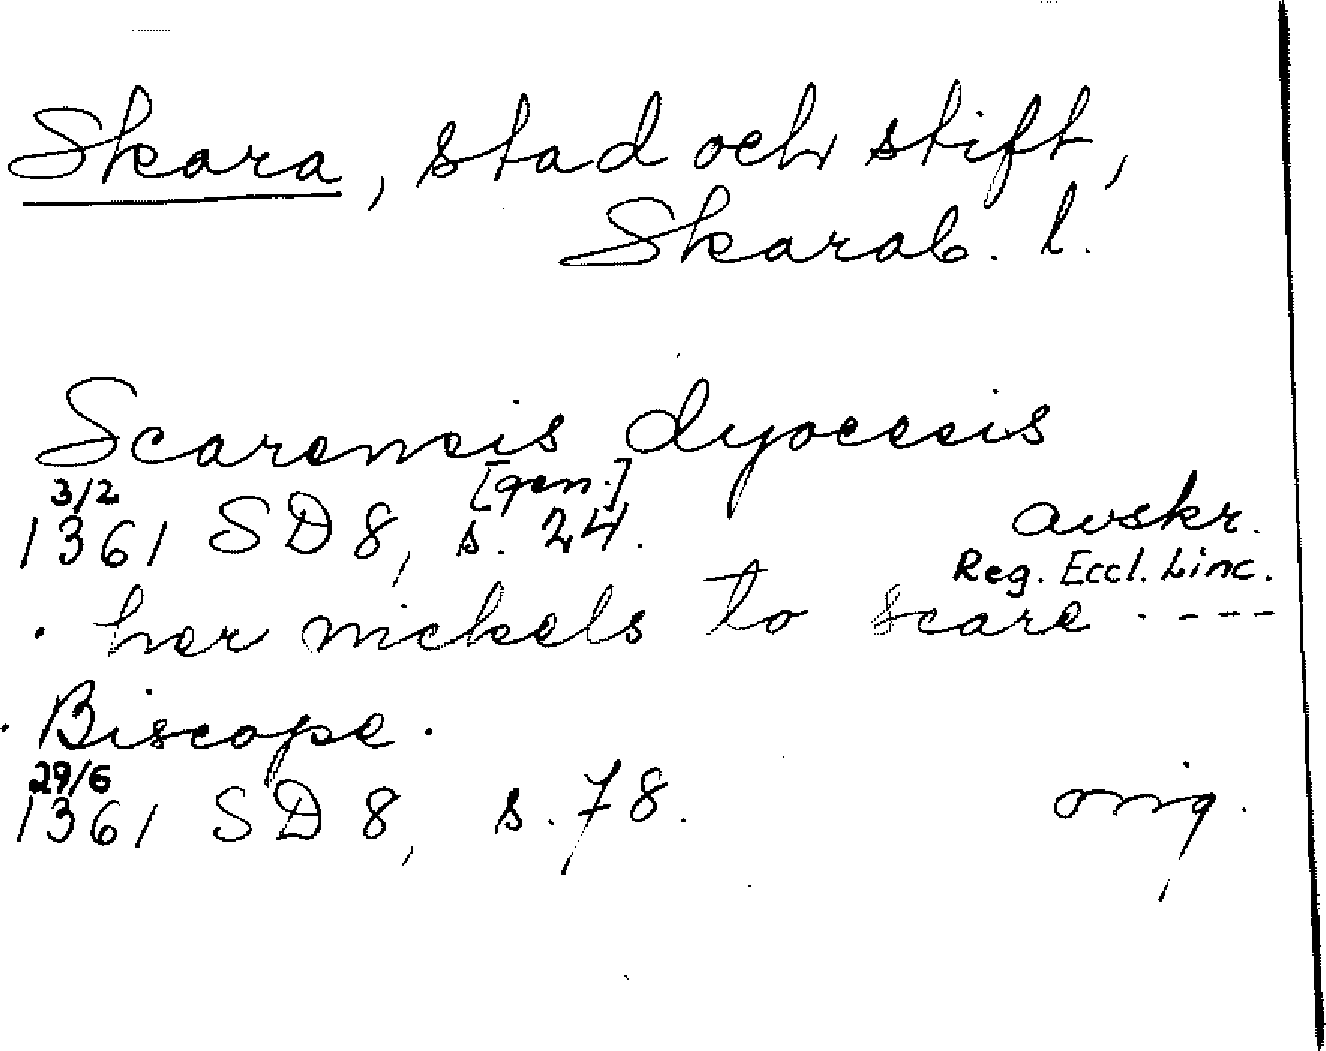 Skara, stad och stift,
Skarab. l.
Scarensis dyocesis
[gen.]
3/2
1361 SD 8, s. 24. avskr.
Reg. Eccl. Linc.
· her nickels to scare · ---
· Biscope ·
29/6
1361 SD 8, s. 78. orig.